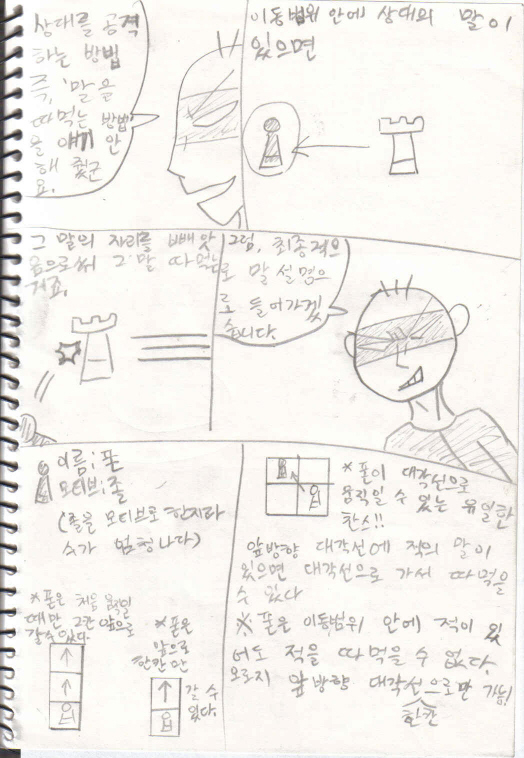 상대를 공격
하는 방법
즉, '말'을
따먹는 방법
을 얘기 안
해 줬군
요.
이동범위 안에 상대의 말이
있으면
그 말의 자리를 빼앗
음으로써 그 말 따먹는
거죠.
그럼, 최종적으
로 말 설명으
로 들어가겠
습니다.
이름; 폰
모티브; 졸
(졸을 모티브로 한지라
수가 엄청나다)
*폰은 처음 움직일
때만 2칸 앞으로
갈수 있다
*폰은
앞으로
한칸만
갈 수
있다.
*폰이 대각선으로
움직일 수 있는 유일한
찬스!!
앞방향 대각선에 적의 말이
있으면 대각선으로 가서 따먹을
수 있다
※ 폰은 이동범위 안에 적이 있
어도 적을 따먹을 수 없다.
오로지 앞방향 대각선으로만 가능!
한칸